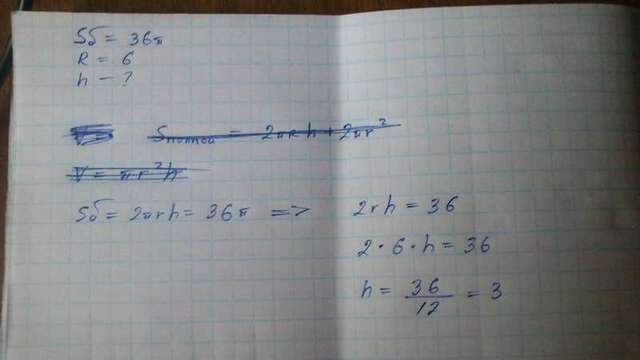 Sб = 36π
R = 6
h - ?
Sполной = 2πRh + 2πr²
V = πr²h
Sб = 2πrh = 36π => 2rh = 36
2 · 6 · h = 36
h = 36/12 = 3